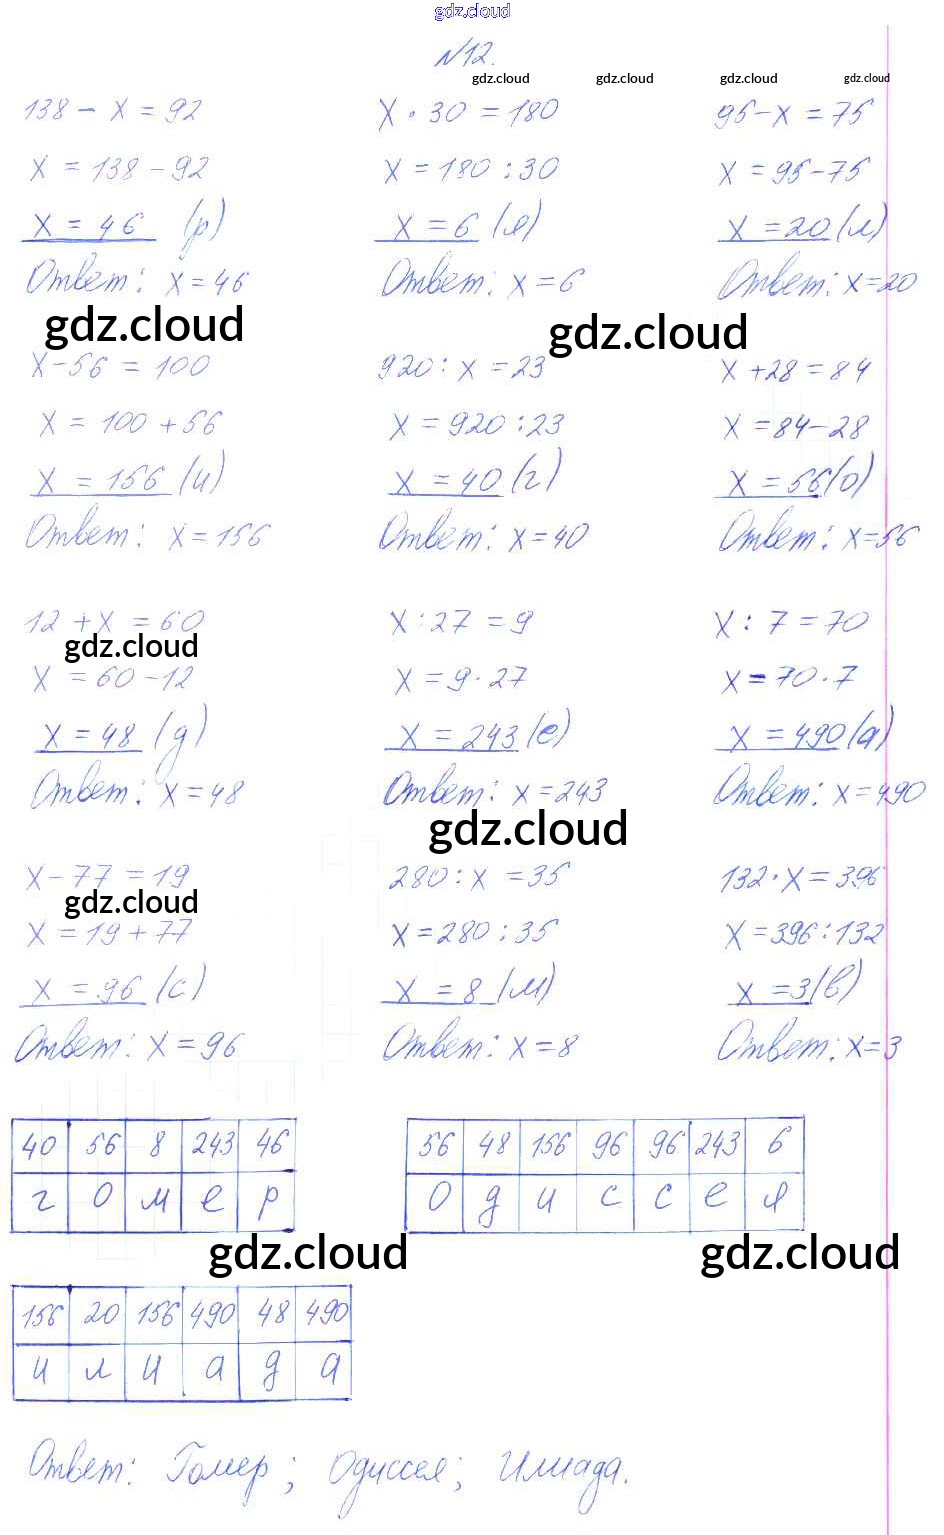 gdz.cloud
№12.
gdz.cloud gdz.cloud gdz.cloud gdz.cloud
138 - x = 92
x = 138 - 92
x = 46 (р)
Ответ: x = 46
x · 30 = 180
x = 180 : 30
x = 6 (я)
Ответ: x = 6
95 - x = 75
x = 95 - 75
x = 20 (л)
Ответ: x = 20
gdz.cloud gdz.cloud
x - 56 = 100
x = 100 + 56
x = 156 (и)
Ответ: x = 156
920 : x = 23
x = 920 : 23
x = 40 (г)
Ответ: x = 40
x + 28 = 84
x = 84 - 28
x = 56 (о)
Ответ: x = 56
12 + x = 60
gdz.cloud
x = 60 - 12
x = 48 (д)
Ответ: x = 48
x : 27 = 9
x = 9 · 27
x = 243 (е)
Ответ: x = 243
x : 7 = 70
x = 70 · 7
x = 490 (а)
Ответ: x = 490
gdz.cloud
x - 77 = 19
gdz.cloud
x = 19 + 77
x = 96 (с)
Ответ: x = 96
280 : x = 35
x = 280 : 35
x = 8 (м)
Ответ: x = 8
132 · x = 396
x = 396 : 132
x = 3 (в)
Ответ: x = 3
40 56 8 243 46
г о м е р
56 48 156 96 96 243 6
о д и с с е я
gdz.cloud gdz.cloud
156 20 156 490 48 490
и л и а д а
Ответ: Гомер; Одиссея; Илиада.